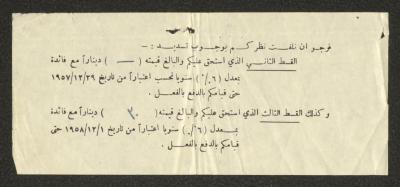 فنرجو ان نلفت نظركم بوجوب تسديد : -
القسط الثاني الذي استحق عليكم والبالغ قيمته ( — ) ديناراً مع فائدة
بمعدل (٦٪) سنويا تحسب اعتباراً من تاريخ ١٩٥٧/١٢/٣٩
حتى قيامكم بالدفع بالفعل .
وكذلك القسط الثالث الذي استحق عليكم والبالغ قيمته ( ٣٠ ) ديناراً مع فائدة
بمعدل (٦٪) سنويا اعتباراً من تاريخ ١٩٥٨/١٢/١ حتى
قيامكم بالدفع بالفعل .